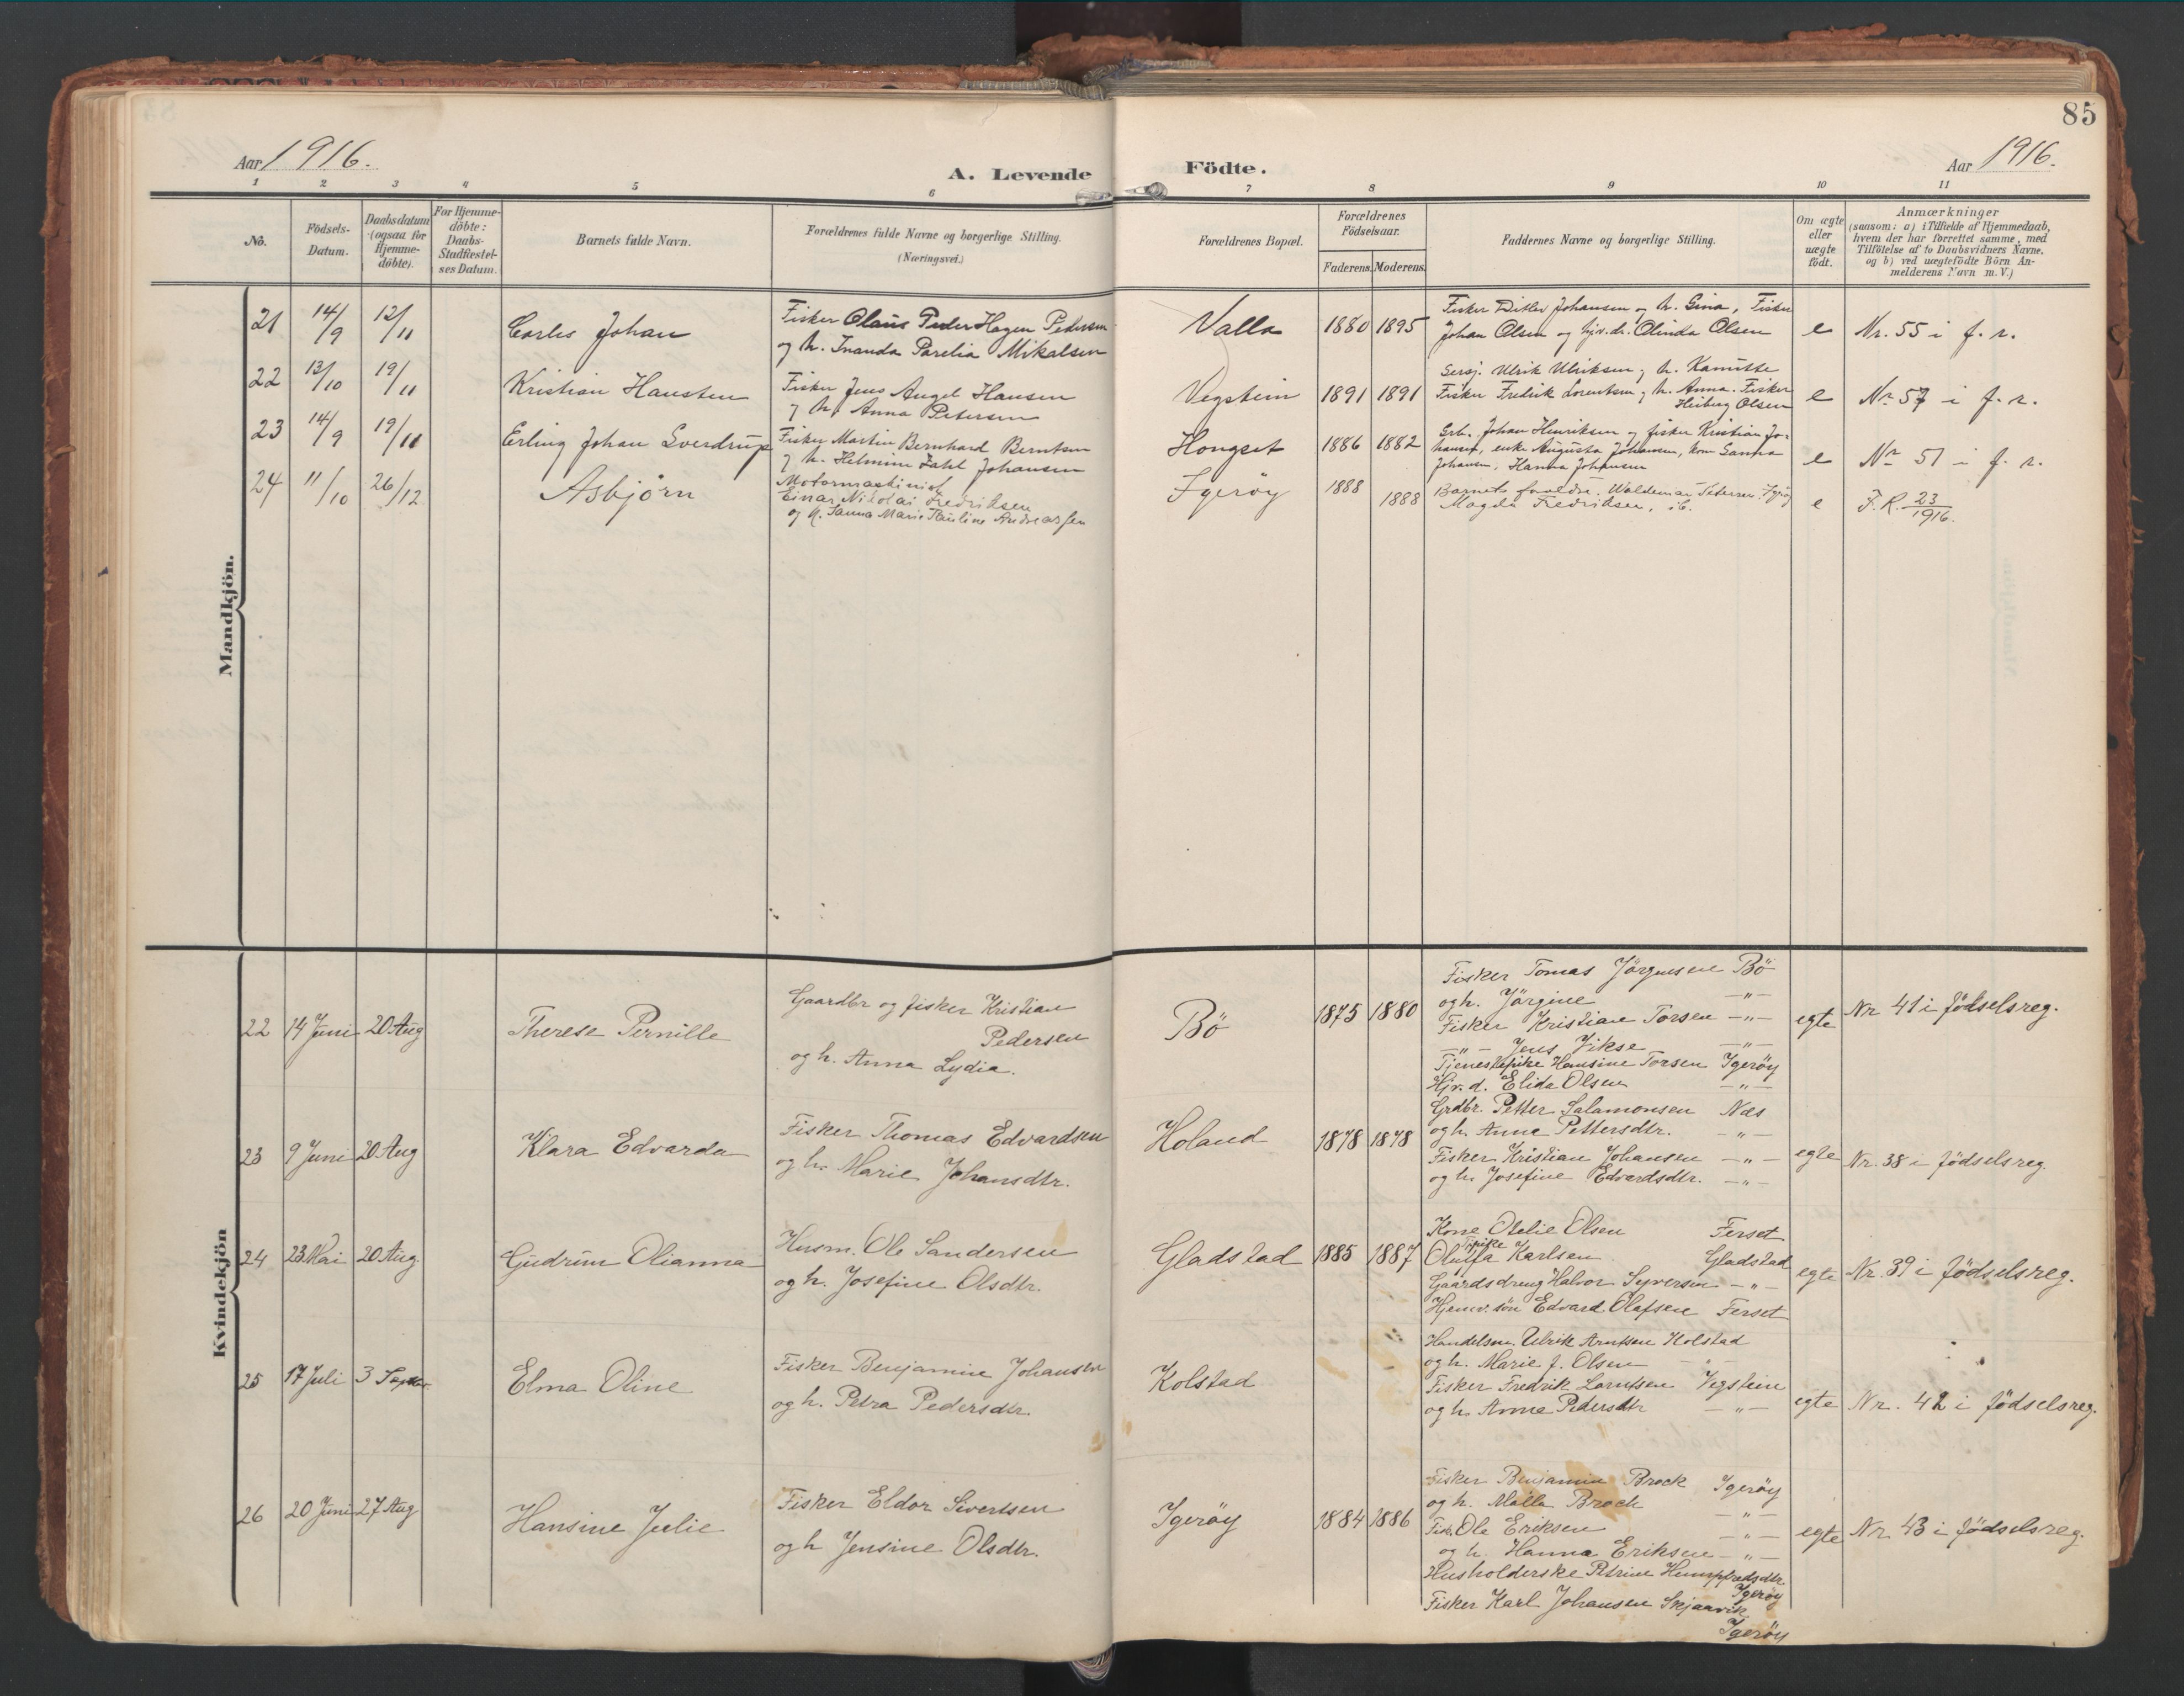 85
Aar 1916.
A. Levende Födte.
Aar 1916.
1 2 3 4 5 6 7 8 9 10 11
No.
Födsels-Datum.
Daabsdatum (ogsaa for Hjemme-döbte).
For Hjemme-döbte: Daabs-Stadfæstel-ses Datum.
Barnets fulde Navn.
Forældrenes fulde Navne og borgerlige Stilling.
(Næringsvei.)
Forældrenes Bopæl.
Forældrenes Födselsaar.
Faderens. Moderens.
Faddernes Navne og borgerlige Stilling.
Om ægte eller uægte födt.
Anmærkninger
(saasom: a) i Tilfælde af Hjemmedaab,
hvem der har forrettet samme, med
Tilföielse af to Daabsvidners Navne.
og b) ved uægtefödte Börn An-
melderens Navn m. V.)
Mandkjön.
21 14/9 12/11 Carlis Johan
Fisker Olaus Peder Hagen Pedersen
og h. Inanda Parelia Mikalsen
Valla 1880 1895
Fisker Ditlev Johansen og h. Gina, Fisker
Johan Olsen og hjv.dr. Olinda Olsen
e Nr. 55 i f. r.
22 13/10 19/11 Kristian Hansten
Fisker Jens Angel Hansen
og h. Anna Petersen
Vegstein 1891 1891
Sersj. Ulrik Ulriksen, h. Kamitte
Fisker Fredrik Lorentsen og h. Anna. Fisker
Heiberg Olsen
e Nr 57 i f. r.
23 14/9 19/11 Erling Johan Sverdrup
Fisker Martin Bernhard Berntsen
og h. Helmine Zahl Johansen
Hongset 1886 1882
Grb. Johan Henriksen og fisker Kristian Jo-
hansen, enke Augusta Johansen, kone Sanna
Johansen, Hanna Johansen
e Nr 51 i f. r.
24 11/10 26/12 Asbjörn
Motormaskinist
Einar Nikolai Fredriksen
og h. Sanna Marie Pauline Andreassen
Igeröy 1888 1888
Barnets forældre. Waldemar Petersen Igröy
Magda Fredriksen, ib.
e F. R. 23/1916.
Kvindekjön
22 14 Juni 20 Aug Therese Pernille
Gaardbr og fisker Kristian
Pedersen
og h. Anna Lydia.
Bö 1875 1880
Fisker Tomas Jörgensen Bö
og h. Jörgine —"—
Fisker Kristian Torsen —"—
—"— Jens Vikse —"—
Tjenestepike Hansine Torsen Igeröy
Hjv. d. Elida Olsen —"—
egte Nr 41 i födselsreg.
23 9 Juni 20 Aug Klara Edvarda
Fisker Thomas Edvardsen
og h. Marie Johansdtr.
Holand 1878 1878
Grdbr. Petter Salamonsen Næs
og h. Anne Pettersdtr. —"—
Fisker Kristian Johansen —"—
og h. Josefine Edvardsdtr. —"—
egte Nr. 38 i födselsreg.
24 23 Mai 20 Aug. Gudrun Olianna
Husm. Ole Sandersen
og h. Josefine Olsdtr.
Gladstad 1885 1887
Kone Otelie Olsen Ferset
Tjpike
Olufa Karlsen Gladstad
Gaardsdreng Halvor Syversen —"—
Hjemv. sön Edvard Olafsen Ferset
egte Nr. 39 i födselsreg.
25 17 Juli 3 Septbr. Elma Oline
Fisker Benjamin Johansen
og h. Petra Pedersdtr.
Kolstad
Handelsm. Ulrik Arntsen Kolstad
og h. Marie J. Olsen —"—
Fisker Fredrik Lorntsen Vegstein
og h. Anna Pedersdtr —"—
egte Nr. 42 i födselsreg.
26 20 Juni 27 Aug Hansine Julie
Fisker Eldor Sivertsen
og h Jensine Olsdtr.
Igeröy 1884 1886
Fisker Benjamin Brock Igeröy
og h. Malla Brock —"—
Fisk. Ole Eriksen —"—
og h. Hanna Eriksen —"—
Husholderske Petrine Humpfredsdtr.
Igeröy
Fisker Karl Johansen Skjaarvik
Igeröy
egte Nr. 43 i födselsreg.